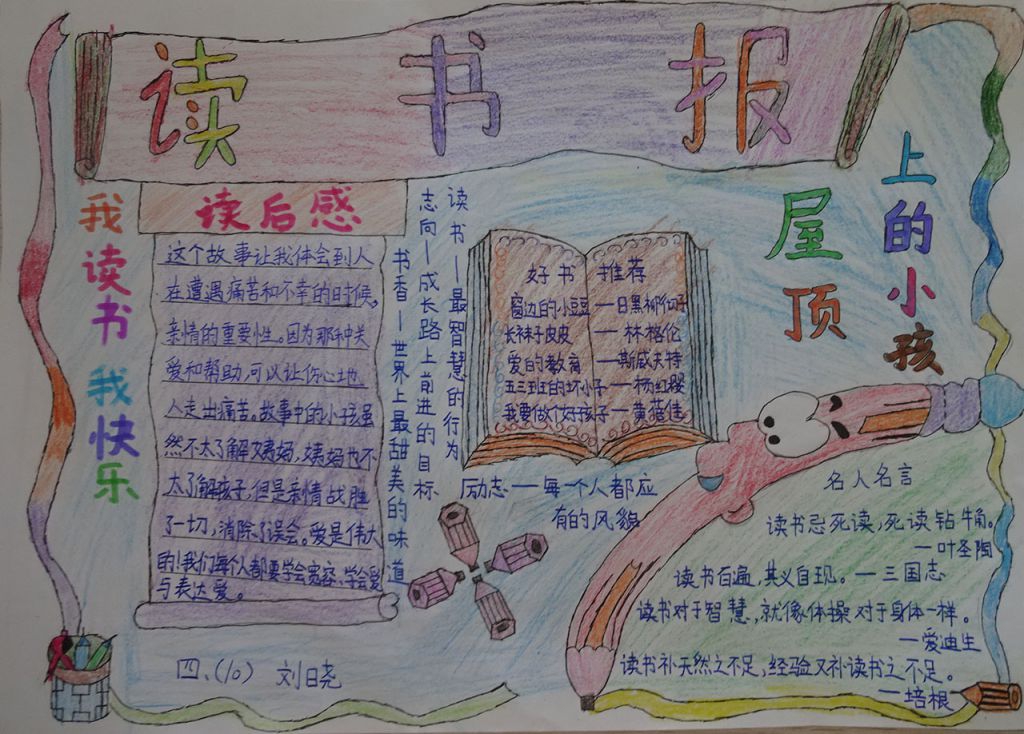 读书报
我读书 我快乐
读后感
这个故事让我体会到人
在遭遇痛苦和不幸的时候,
亲情的重要性。因为那种关
爱和帮助,可以让伤心地
人走出痛苦。故事中的小孩虽
然不太了解姨妈,姨妈也不
太了解孩子,但是亲情战胜
了一切,消除了误会。爱是伟大
的!我们每个人都要学会宽容、学会爱
与表达爱。
读书—最智慧的行为
志向—成长路上前进的目标
书香—世界上最甜美的味道
好书推荐
窗边的小豆豆—日黑柳彻子
长袜子皮皮—林格伦
爱的教育—斯威夫特
五三班的坏小子—杨红樱
我要做个好孩子—黄蓓佳
励志—每一个人都应
有的风貌
屋顶
上的小孩
名人名言
读书忌死读,死读钻牛角。
—叶圣陶
读书百遍,其义自现。—三国志
读书对于智慧,就像体操对于身体一样。
—爱迪生
读书补天然之不足,经验又补读书之不足。
—培根
四、(10) 刘日尧